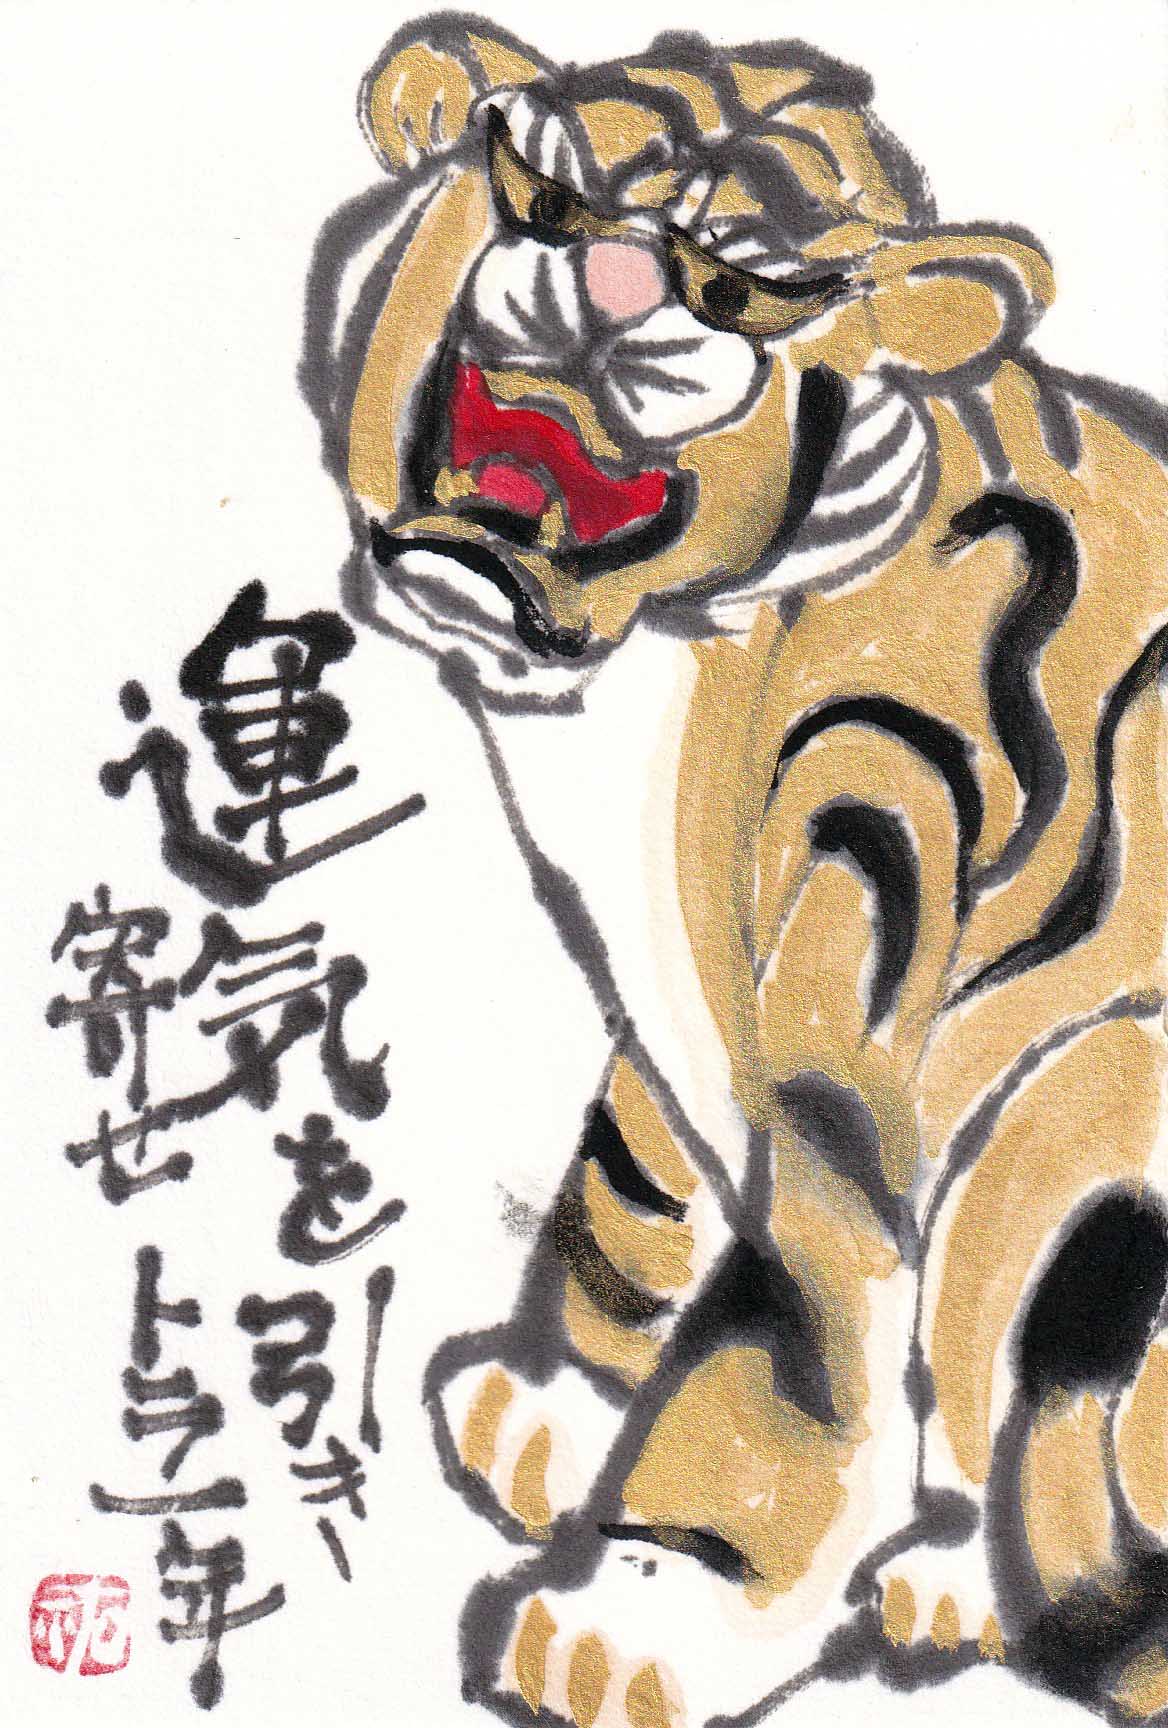 運気を引き
寄せトラ一年
祝